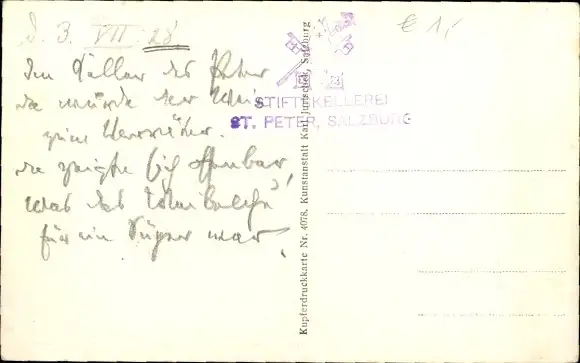 d. 3. VII. 28
Im Keller des Peter
da wurde der Wein
zum Verräter.
da zeigte sich offenbar,
was das
für ein war!
€ 1,-
STIFTSKELLEREI
ST. PETER, SALZBURG
Kupferdruckkarte Nr. 4078, Kunstanstalt Karl Jurischek, Salzburg